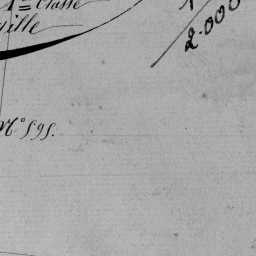 1 = Classe
ville
1/2.000
N° 595.